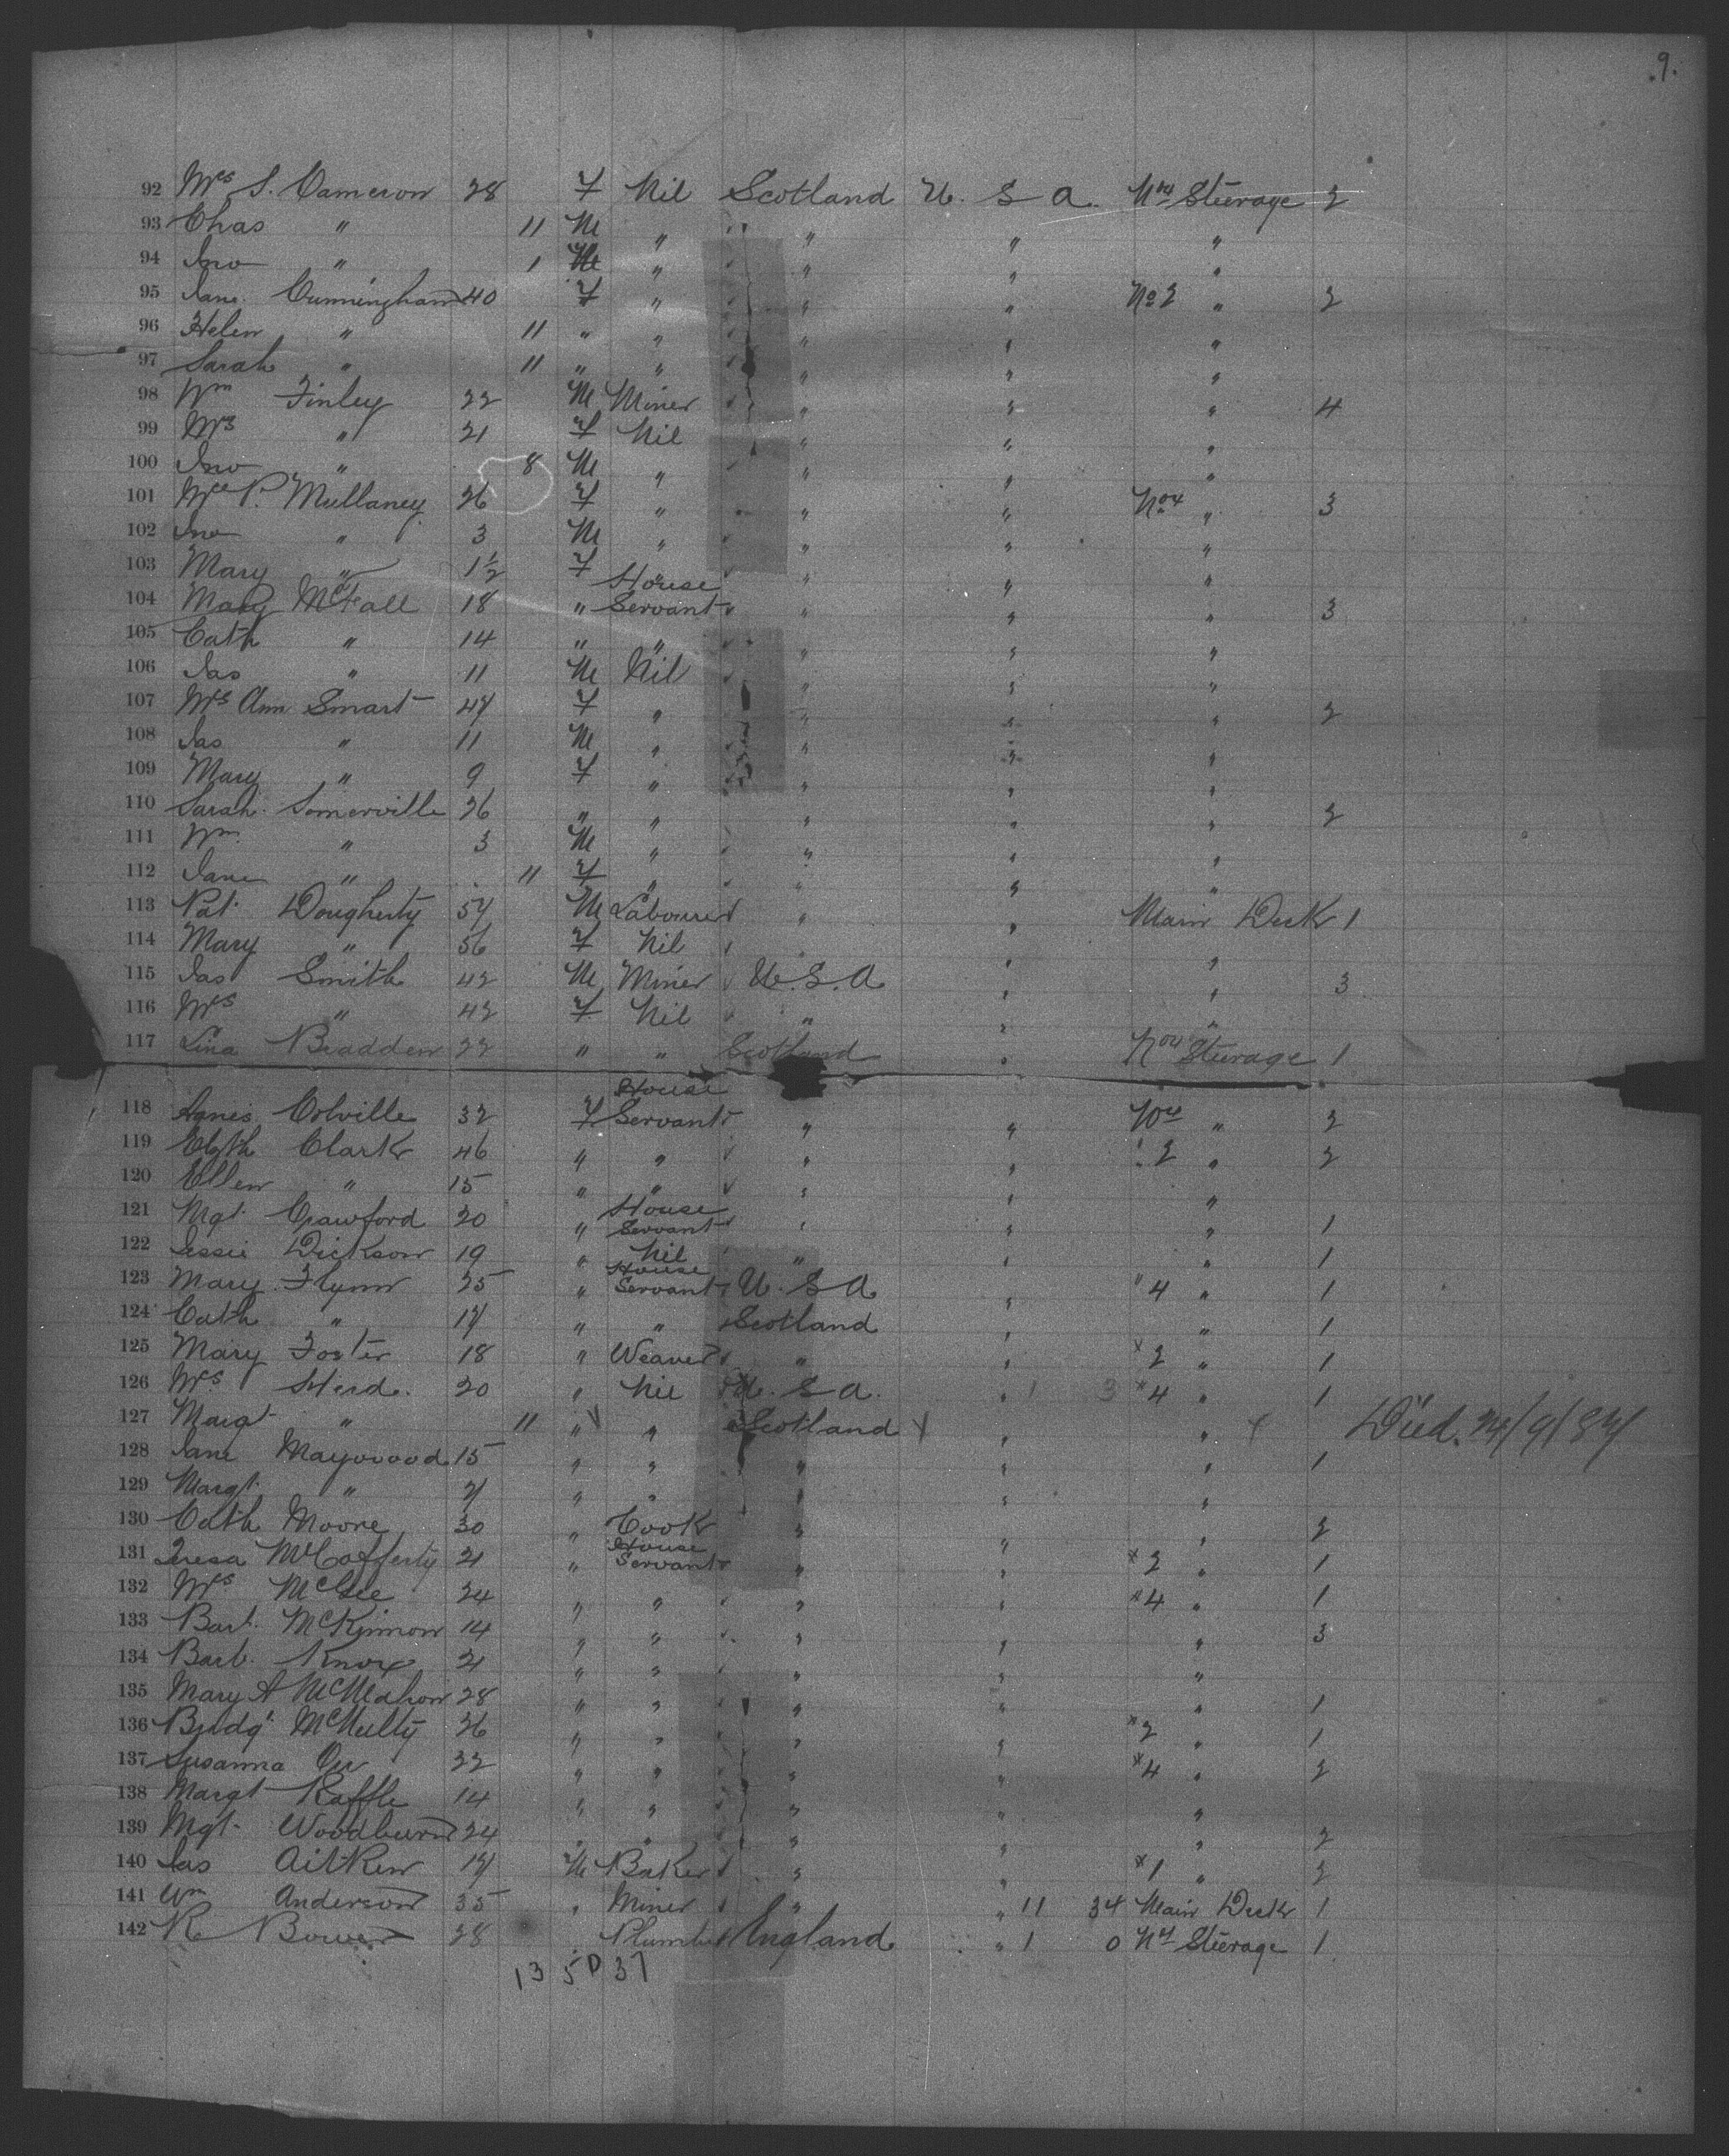 9.
92 Mrs S. Cameron 28 F Nil Scotland U. S. A. No 4 Steerage 2
93 Chas " 11 M " " " "
94 Jno " 1 M " " " "
95 Jane Cunningham 40 F " " " No 2 " 2
96 Helen " 11 " " " " "
97 Sarah " 11 " " " " "
98 Wm Finley 22 M Miner " " " 4
99 Mrs " 21 F Nil " " "
100 Jno " 8 M " " " "
101 Mrs P. Mullaney 26 F " " " No 4 " 3
102 Jno " 3 M " " " "
103 Mary " 1½ F " " " "
104 Mary McFall 18 " House Servant " " " 3
105 Cath " 14 " " " " "
106 Jas " 11 M Nil " " "
107 Mrs Ann Smart 47 F " " " " 2
108 Jas " 11 M " " " "
109 Mary " 9 F " " " "
110 Sarah Somerville 26 " " " " " 2
111 Wm " 3 M " " " "
112 Jane " 11 F " " " "
113 Pat Dougherty 57 M Labourer " " Main Deck 1
114 Mary " 56 F Nil " " "
115 Jas Smith 42 M Miner U.S.A " " 3
116 Mrs " 42 F Nil " " "
117 Lina Bradden 22 " " Scotland " No 4 Steerage 1
118 Agnes Colville 32 F House Servant " " No 4 " 2
119 Elzth Clark 46 " " " " " 2 " 2
120 Ellen " 15 " " " " "
121 Mgt. Crawford 20 " House Servant " " " 1
122 Jessie Dickson 19 " Nil " " " 1
123 Mary Flynn 25 " House Servant U. S A " " 4 " 1
124 Cath " 17 " " Scotland " " 1
125 Mary Foster 18 " Weaver " " " 2 " 1
126 Mrs Herd. 20 " Nil U. S. A. " 1 3 " 4 " 1
127 Margt " 11 " " Scotland " " Died. 24/9/87
128 Jane Maywood 15 " " " " " 1
129 Margt. " " " " " "
130 Cath Moore 30 " Cook " " " 2
131 Teresa McCafferty 21 " House Servant " " " 2 " 1
132 Mrs McGee 24 " " " " " 4 " 1
133 Barb. McKinnon 14 " " " " " 3
134 Barb. Knox 21 " " " " "
135 Mary A McMahon 28 " " " " " 1
136 Bridgt McNulty 26 " " " " " 2 " 1
137 Susanna Orr 22 " " " " " 4 " 2
138 Margt Raffle 14 " " " " "
139 Mgt. Woodburn 24 " " " " " 2
140 Jas Aitken 17 M Baker " " " 1 " 2
141 Wm Anderson 35 " Miner " " 11 34 Main Deck 1
142 R Bower 28 Plumber England " 1 0 No 1 Steerage 1
13 5 D 37